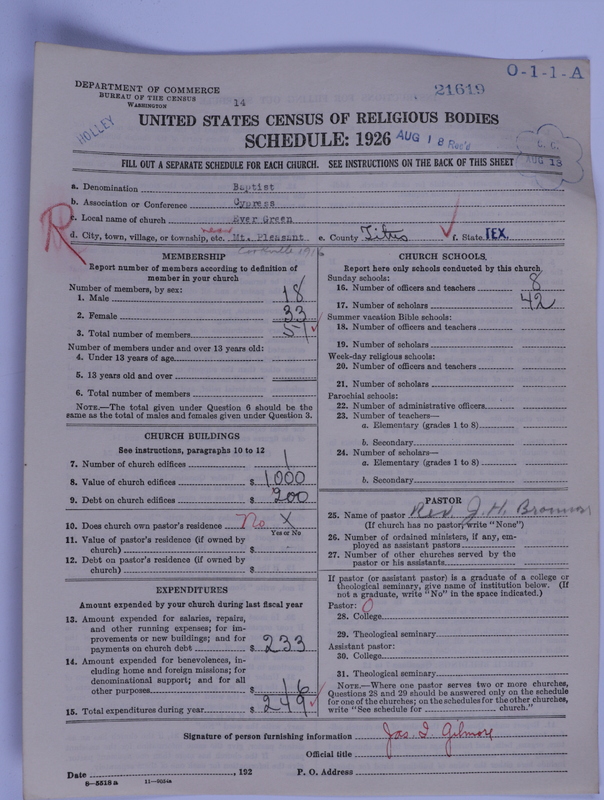 O-1-1-A
DEPARTMENT OF COMMERCE
BUREAU OF THE CENSUS
WASHINGTON
14
21619
HOLLEY
UNITED STATES CENSUS OF RELIGIOUS BODIES
SCHEDULE: 1926 AUG 18 Rec'd
AUG 13
FILL OUT A SEPARATE SCHEDULE FOR EACH CHURCH. SEE INSTRUCTIONS ON THE BACK OF THIS SHEET
a. Denomination Baptist
b. Association or Conference Cypress
R
c. Local name of church Ever Green
near
d. City, town, village, or township, etc. Mt. Pleasant e. County Titus f. State TEX.
Cookville 1916
MEMBERSHIP
Report number of members according to definition of
member in your church
Number of members, by sex:
1. Male 18
2. Female 33
3. Total number of members 51
Number of members under and over 13 years old:
4. Under 13 years of age
5. 13 years old and over
6. Total number of members
NOTE.—The total given under Question 6 should be the
same as the total of males and females given under Question 3.
CHURCH BUILDINGS
See instructions, paragraphs 10 to 12
7. Number of church edifices 1
8. Value of church edifices $ 1000
9. Debt on church edifices $ 200
10. Does church own pastor's residence No X
Yes or No
11. Value of pastor's residence (if owned by
church) $
12. Debt on pastor's residence (if owned by
church) $
EXPENDITURES
Amount expended by your church during last fiscal year
13. Amount expended for salaries, repairs,
and other running expenses; for im-
provements or new buildings; and for
payments on church debt $ 233
14. Amount expended for benevolences, in-
cluding home and foreign missions; for
denominational support; and for all
other purposes $ 16
15. Total expenditures during year $ 249
CHURCH SCHOOLS
Report here only schools conducted by this church
Sunday schools:
16. Number of officers and teachers 8
17. Number of scholars 42
Summer vacation Bible schools:
18. Number of officers and teachers
19. Number of scholars
Week-day religious schools:
20. Number of officers and teachers
21. Number of scholars
Parochial schools:
22. Number of administrative officers
23. Number of teachers—
a. Elementary (grades 1 to 8)
b. Secondary
24. Number of scholars—
a. Elementary (grades 1 to 8)
b. Secondary
PASTOR
25. Name of pastor Rev. J. H. Bronson
(If church has no pastor, write "None")
26. Number of ordained ministers, if any, em-
ployed as assistant pastors
27. Number of other churches served by the
pastor or his assistants
If pastor (or assistant pastor) is a graduate of a college or
theological seminary, give name of institution below. (If
not a graduate, write "No" in the space indicated.)
Pastor: 0
28. College
29. Theological seminary
Assistant pastor:
30. College
31. Theological seminary
NOTE.—Where one pastor serves two or more churches,
Questions 28 and 29 should be answered only on the schedule
for one of the churches; on the schedules for the other churches,
write "See schedule for church."
Signature of person furnishing information Jas. I. Gilmore
Official title
Date , 192 P. O. Address
8—5518 a 11—9054a